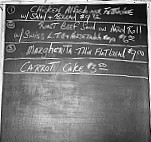 ① Chicken Alfredo over Fettuccine
w/ Salad + Bread $9.
Roast Beef Sand. on Hard Roll
w/ Swiss, L, T &
③ Margherita Thin Flatbread $9.00
Carrot Cake $3.50